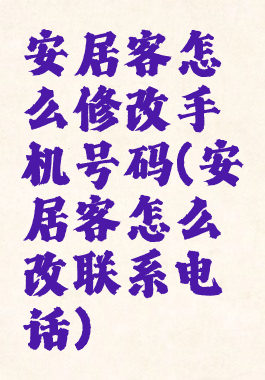 安居客怎
么修改手
机号码(安
居客怎么
改联系电
话)